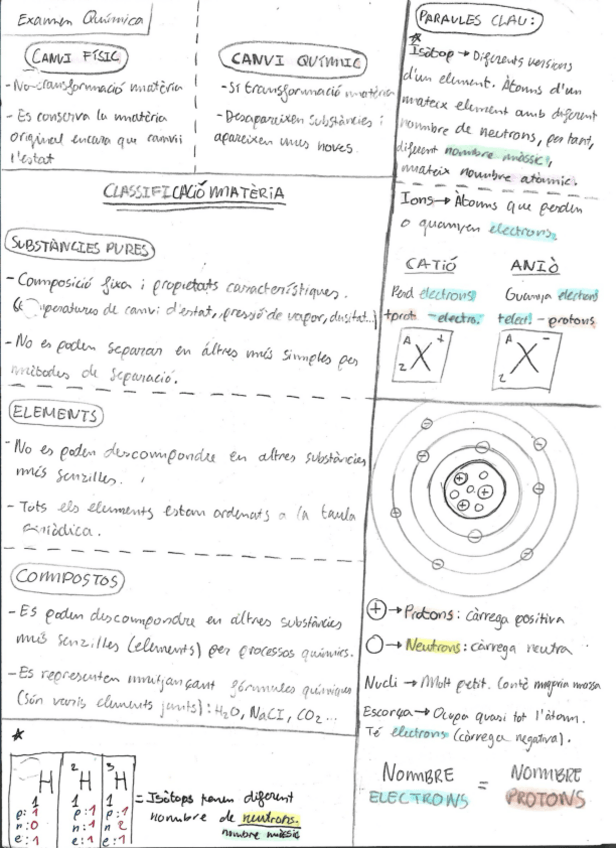 Examen Química
CANVI FÍSIC
- No transformació matèria
- Es conserva la matèria
original encara que canvii
l'estat
CANVI QUÍMIC
- Sí transformació matèria
- Desapareixen substàncies i
apareixen unes noves.
CLASSIFICACIÓ MATÈRIA
SUBSTÀNCIES PURES
- Composició fixa i propietats característiques.
de canvi d'estat, pressió de vapor, dusitat...)
- No es poden separar en altres més simples per
mètodes de separació.
ELEMENTS
- No es poden descompondre en altres substàncies
més senzilles.
- Tots els elements estan ordenats a la taula
Periòdica.
COMPOSTOS
- Es poden descompondre en altres substàncies
més senzilles (elements) per processos químics.
- Es representen mitjançant fórmules químiques
(Són varis elements junts): H₂O, NaCl, CO₂...
*
H
1
p: 1
n: 0
e: 1
2
H
1
p: 1
n: 1
e: 1
3
H
1
p: 1
n: 2
e: 1
= Isòtops tenen diferent
nombre de neutrons.
nombre màssic
PARAULES CLAU:
*
Isòtop → Diferents versions
d'un element. Àtoms d'un
mateix element amb diferent
nombre de neutrons, per tant,
diferent nombre màssic,
mateix nombre atòmic.
Ions → Àtoms que perden
o guanyen electrons.
CATIÓ
Perd electrons
+prot -electro.
A
X +
Z
ANIÒ
Guanya electrons
+elect. - protons.
A
X -
Z
⊕ → Protons: càrrega positiva
○ → Neutrons: càrrega neutra
Nucli → Molt petit. Conté majoria massa
Escorça → Ocupa quasi tot l'àtom.
Té electrons (càrrega negativa).
NOMBRE
ELECTRONS
=
NOMBRE
PROTONS